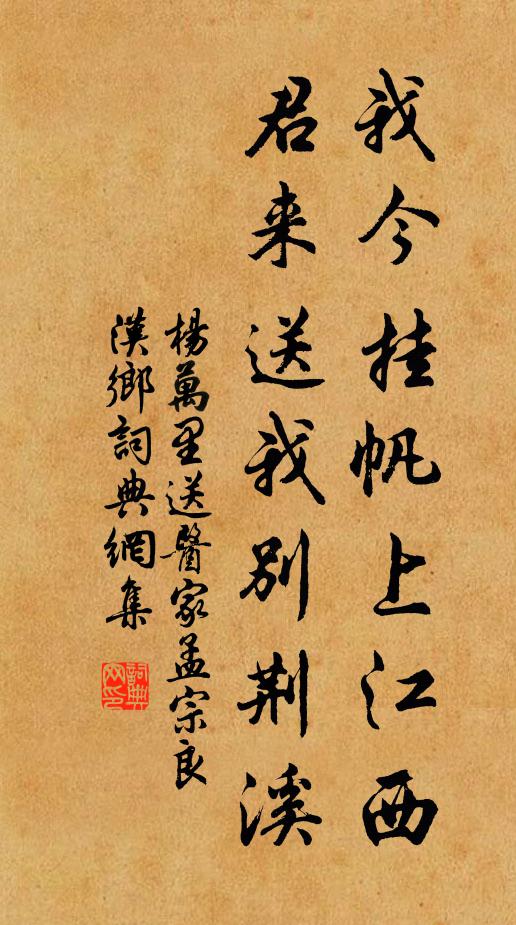 我今挂帆上江西
君来送我别荆溪
楊萬里送醫家孟宗良
漢鄉詞典網集
詞典網印